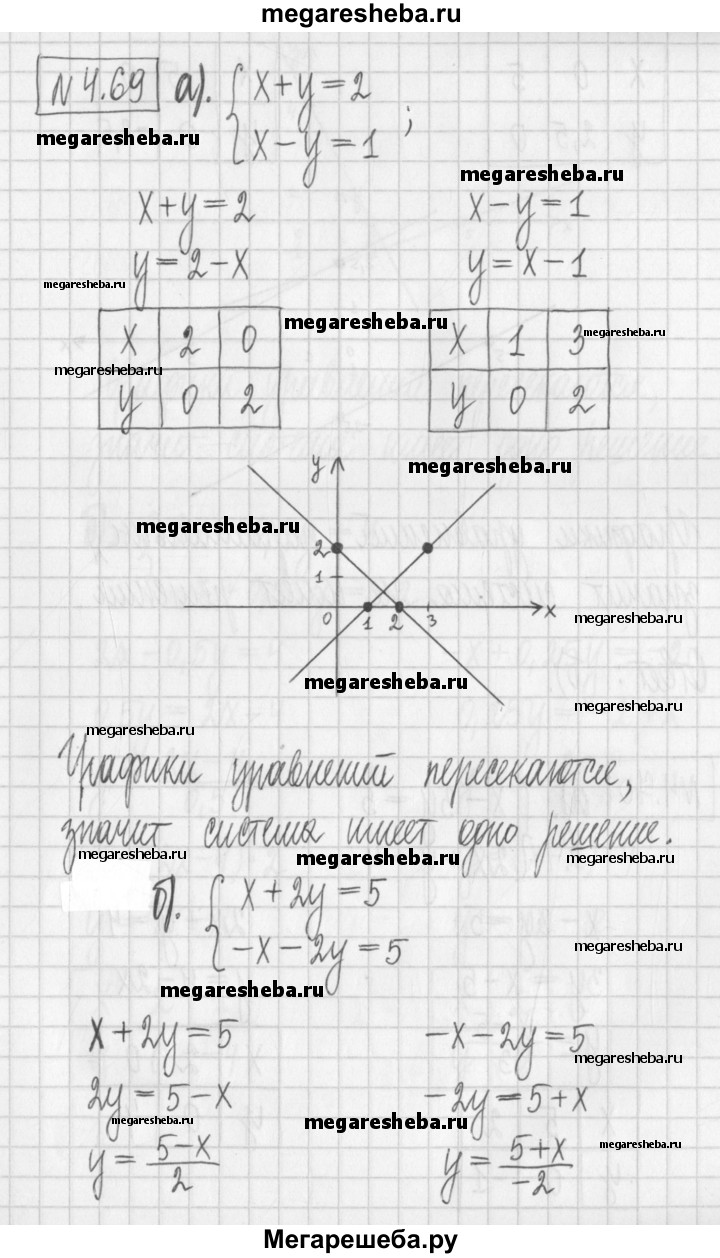 megaresheba.ru
№4.69 а). { x+y=2
x-y=1 ;
megaresheba.ru
megaresheba.ru
x+y=2 x-y=1
y=2-x y=x-1
megaresheba.ru
megaresheba.ru
megaresheba.ru
x 2 0 x 1 3
megaresheba.ru
y 0 2 y 0 2
y
megaresheba.ru
megaresheba.ru
2
1
0 1 2 3 x
megaresheba.ru
megaresheba.ru
megaresheba.ru
megaresheba.ru
Графики уравнений пересекаются,
значит система имеет одно решение.
megaresheba.ru megaresheba.ru megaresheba.ru
б). { x+2y=5
-x-2y=5
megaresheba.ru
megaresheba.ru
x+2y=5 -x-2y=5
megaresheba.ru
2y=5-x -2y=5+x
megaresheba.ru megaresheba.ru
megaresheba.ru
y=\frac{5-x}{2} y=\frac{5+x}{-2}
Мегарешеба.ру